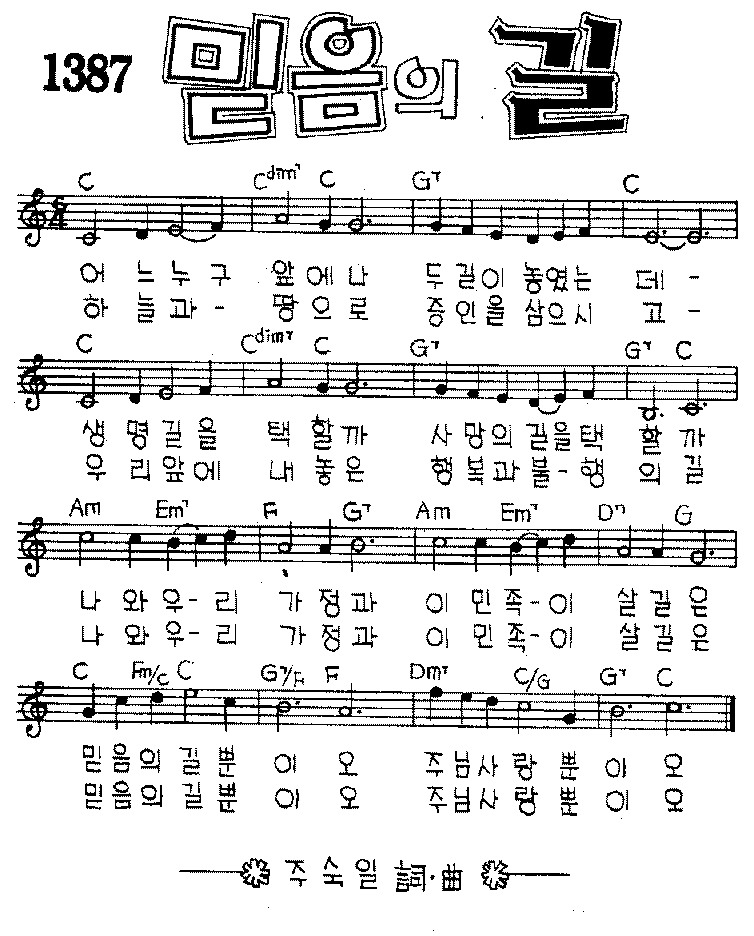 1387 믿음의 길
C Cdim7 C G7 C
어 느 누 구 앞에나 두길이 놓였는 데 -
하 늘과 - 땅으로 증인을 삼으시 고 -
C Cdim7 C G7 G7 C
생 명길을 택할까 사 망의 길을택 할까
우 리앞에 내놓은 행복과불-행 의길
Am Em7 F G7 Am Em7 D7 G
나 와우-리 가정과 이 민족-이 살길은
나 와우-리 가정과 이 민족-이 살길은
C Fm/C C G7/F F Dm7 C/G G7 C
믿음의 길뿐 이 오 주님사 랑뿐 이 오
믿음의 길뿐 이 오 주님사 랑뿐 이 오
주 숙 일 詞·曲